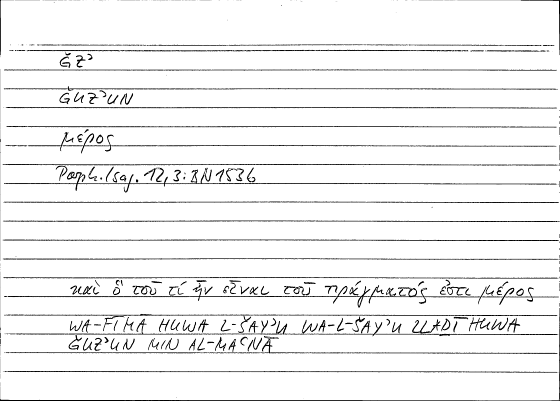 ǦZʾ
ǦUZʾUN
μέρος
Porph. Isag. 12,3: BN 153b
καὶ ὃ τοῦ τί ἦν εἶναι τοῦ πράγματός ἐστι μέρος
WA-FĪMĀ HUWA L-ŠAYʾU WA-L-ŠAYʾU LLAḎĪ HUWA
ǦUZʾUN MIN AL-MAʿNĀ